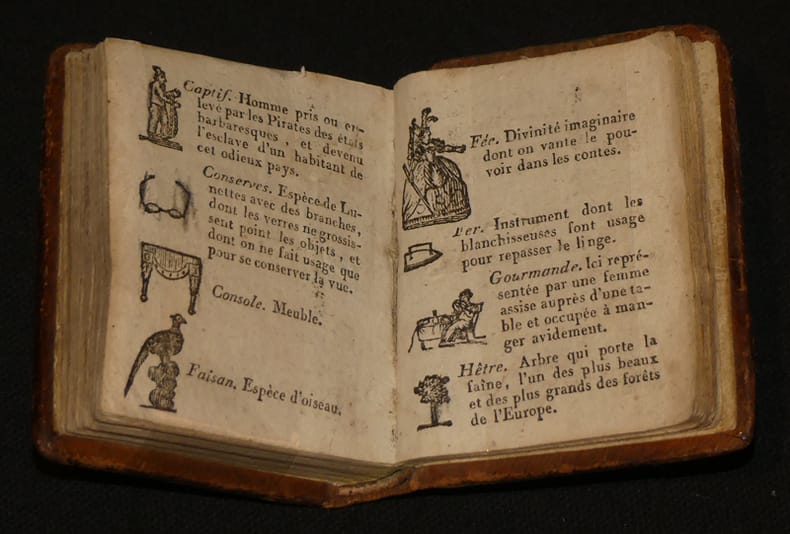 Captif. Homme pris ou en-
levé par les Pirates des états
barbaresques, et devenu
l'esclave d'un habitant de
cet odieux pays.
Conserves. Espèce de Lu-
nettes avec des branches,
dont les verres ne grossis-
sent point les objets, et
dont on ne fait usage que
pour se conserver la vue.
Console. Meuble.
Faisan. Espèce d'oiseau.
Fée. Divinité imaginaire
dont on vante le pou-
voir dans les contes.
Fer. Instrument dont les
blanchisseuses font usage
pour repasser le linge.
Gourmande. Ici repré-
sentée par une femme
assise auprès d'une ta-
ble et occupée à man-
ger avidement.
Hêtre. Arbre qui porte la
faîne, l'un des plus beaux
et des plus grands des forêts
de l'Europe.